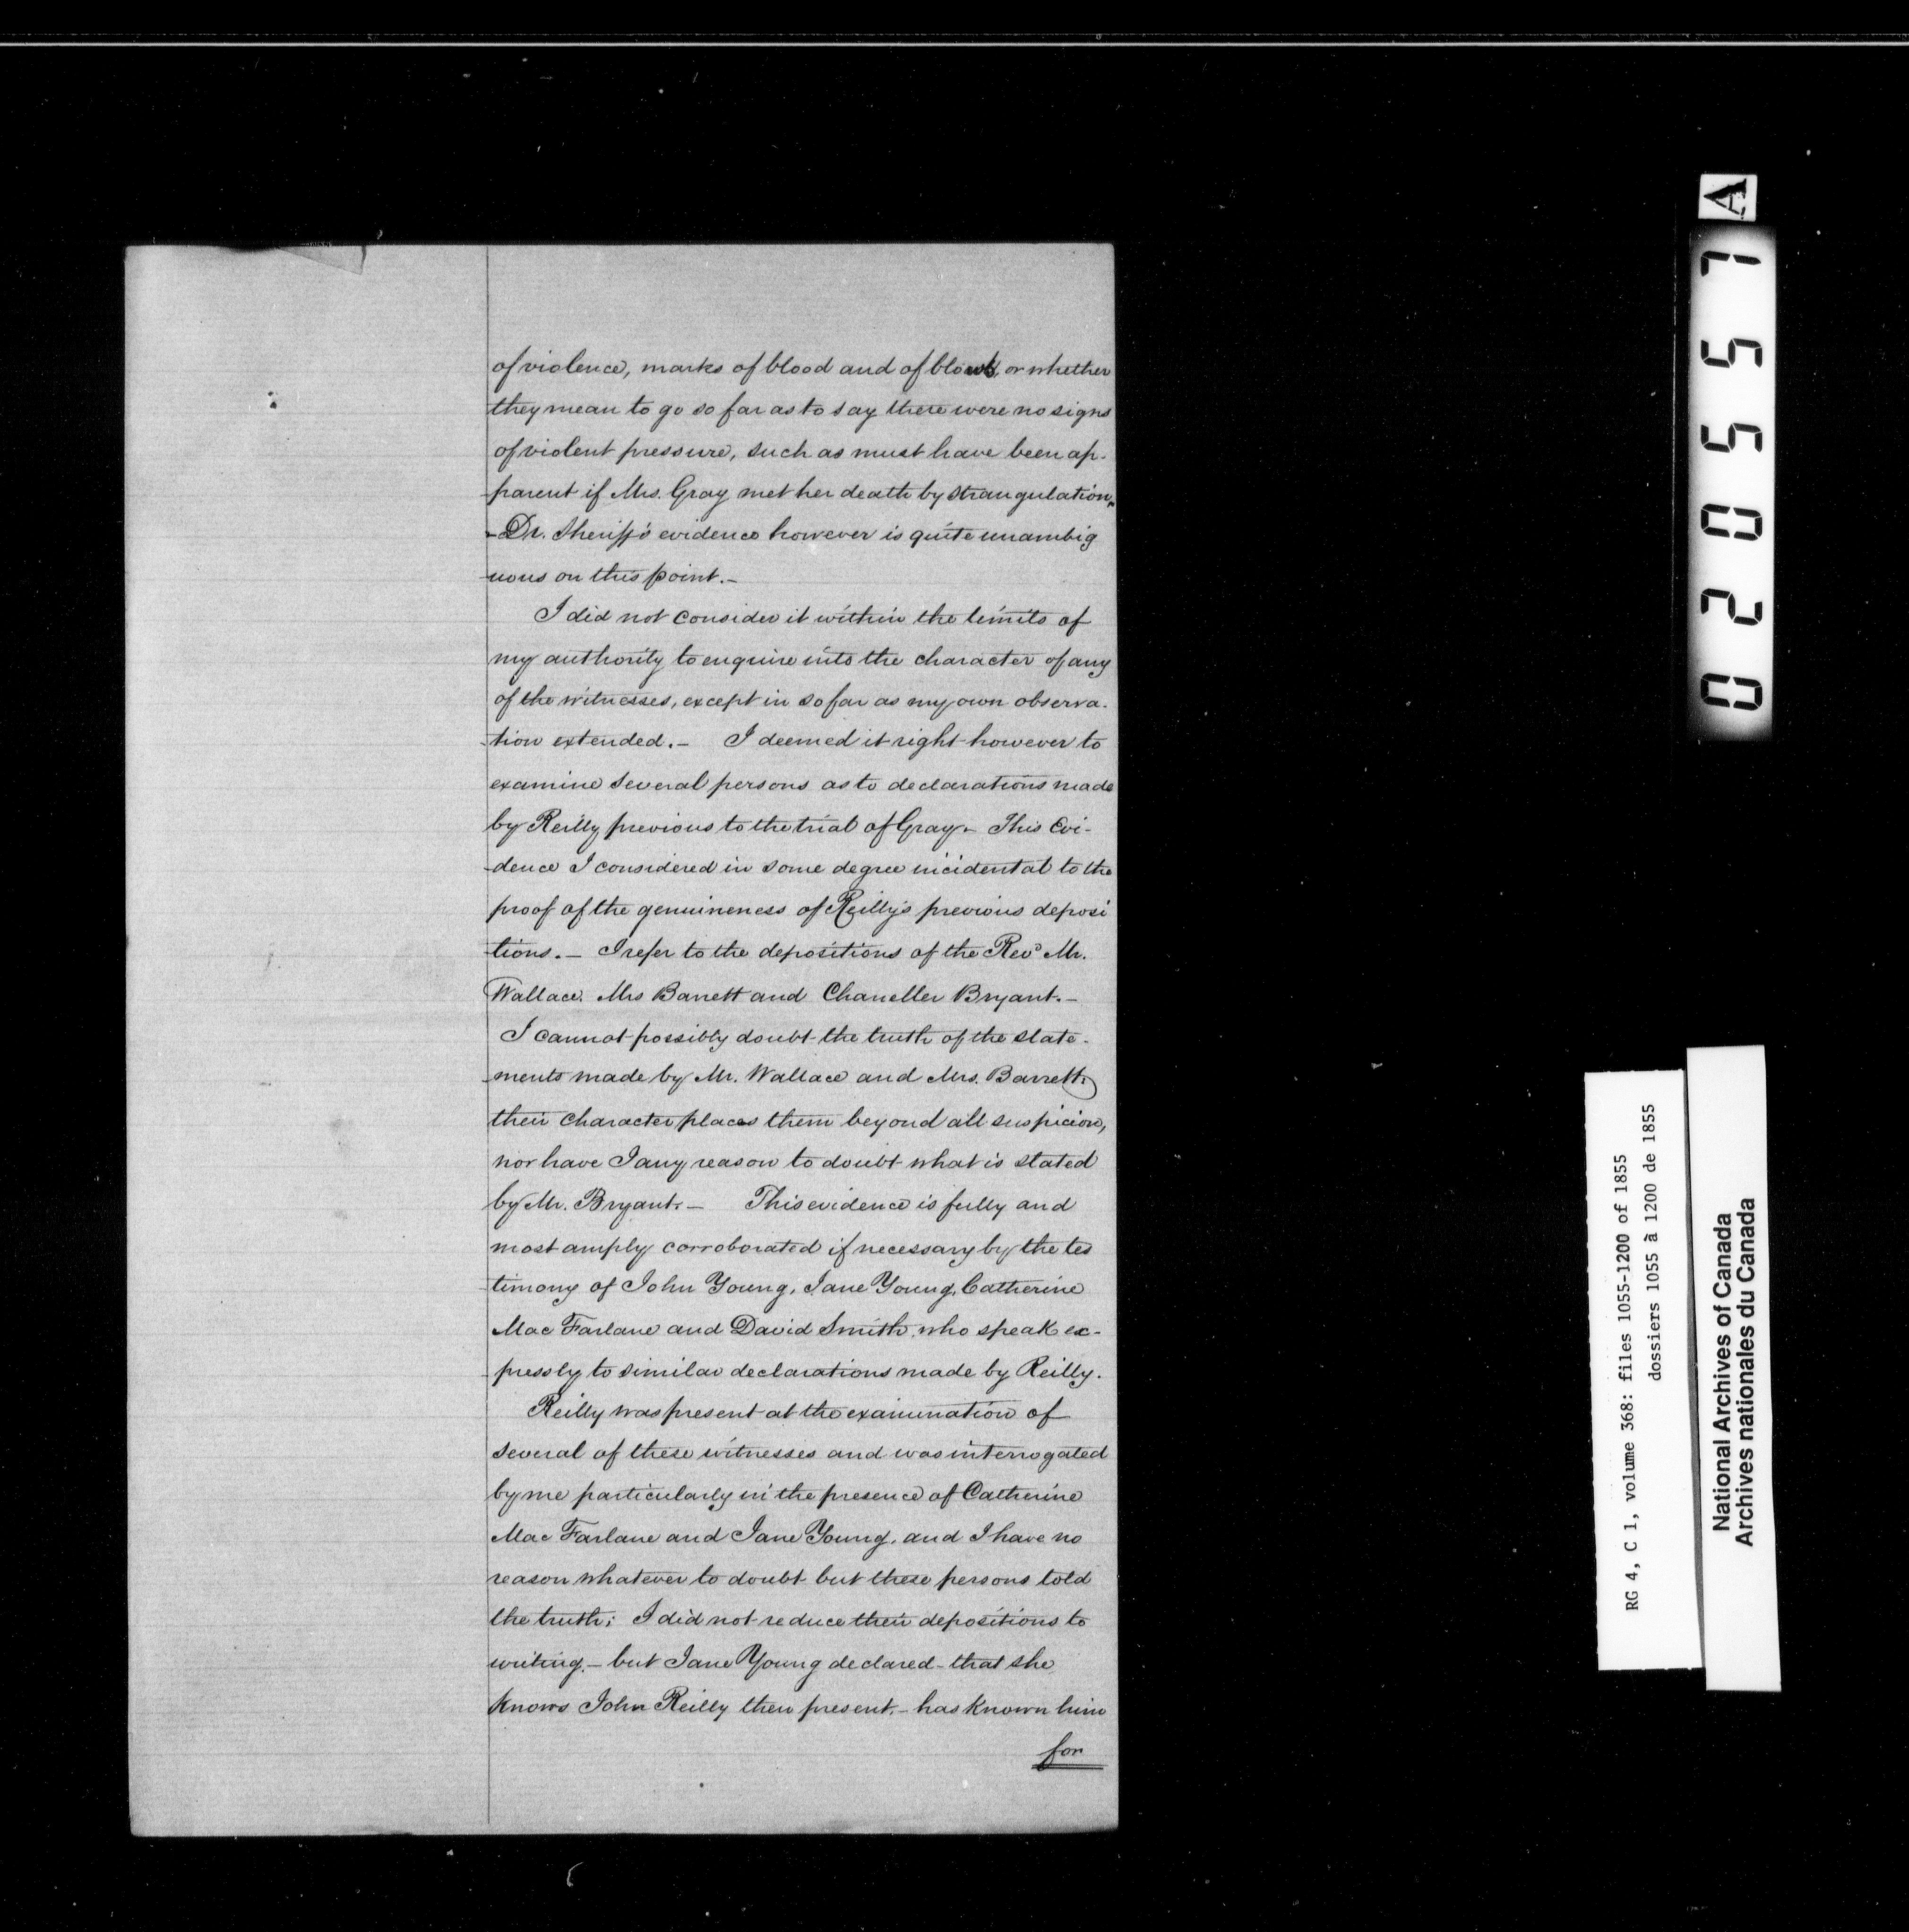 of violence, marks of blood and of blows, or whether
they mean to go so far as to say there were no signs
of violent pressure, such as must have been ap-
parent if Mrs. Gray met her death by strangulation,
- Dr. Sheriff's evidence however is quite unambig
uous on this point. -
I did not consider it within the limits of
my authority to enquire into the character of any
of the witnesses, except in so far as my own observa-
tion extended. - I deemed it right however to
examine several persons as to declarations made
by Reilly previous to the trial of Gray - This Evi-
dence I considered in some degree incidental to the
proof of the genuineness of Reilly's previous deposi
tions. - I refer to the depositions of the Revd Mr.
Wallace. Mrs Barrett and Chaneller Bryant. -
I cannot possibly doubt the truth of the state-
ments made by Mr. Wallace and Mrs. Barrett,
their character places them beyond all suspicion,
nor have I any reason to doubt what is stated
by Mr. Bryant. - This evidence is fully and
most amply corroborated if necessary by the tes
timony of John Young, Jane Young, Catherine
Mac Farlane and David Smith, who speak ex-
pressly to similar declarations made by Reilly.
Reilly was present at the examination of
several of these witnesses and was interrogated
by me particularly in the presence of Catherine
Mac Farlane and Jane Young, and I have no
reason whatever to doubt but these persons told
the truth; I did not reduce their depositions to
writing. - but Jane Young declared - that she
knows John Reilly then present. - has known him
for
A
020557
RG 4, C 1, volume 368: files 1055-1200 of 1855
dossiers 1055 à 1200 de 1855
National Archives of Canada
Archives nationales du Canada